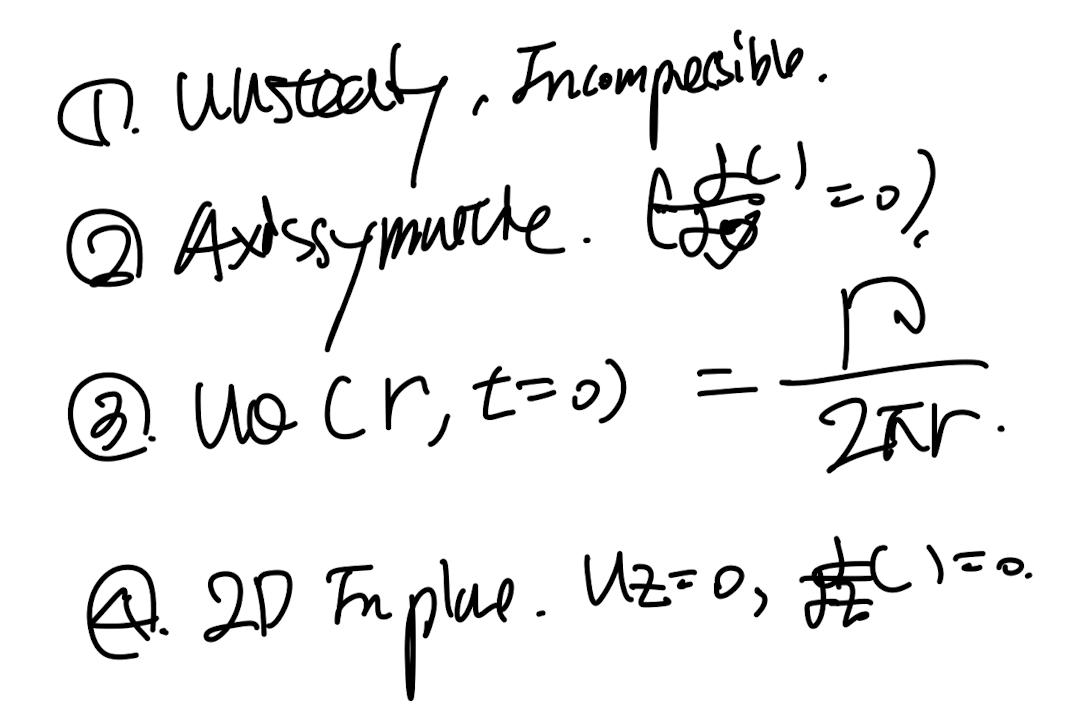 ①. Unsteady, Incompressible.
② Axissymmetric. (∂( )/∂θ = 0),
③. Uθ (r, t=0) = Γ/2πr.
④. 2D In plane. Uz=0, ∂/∂z( )=0.